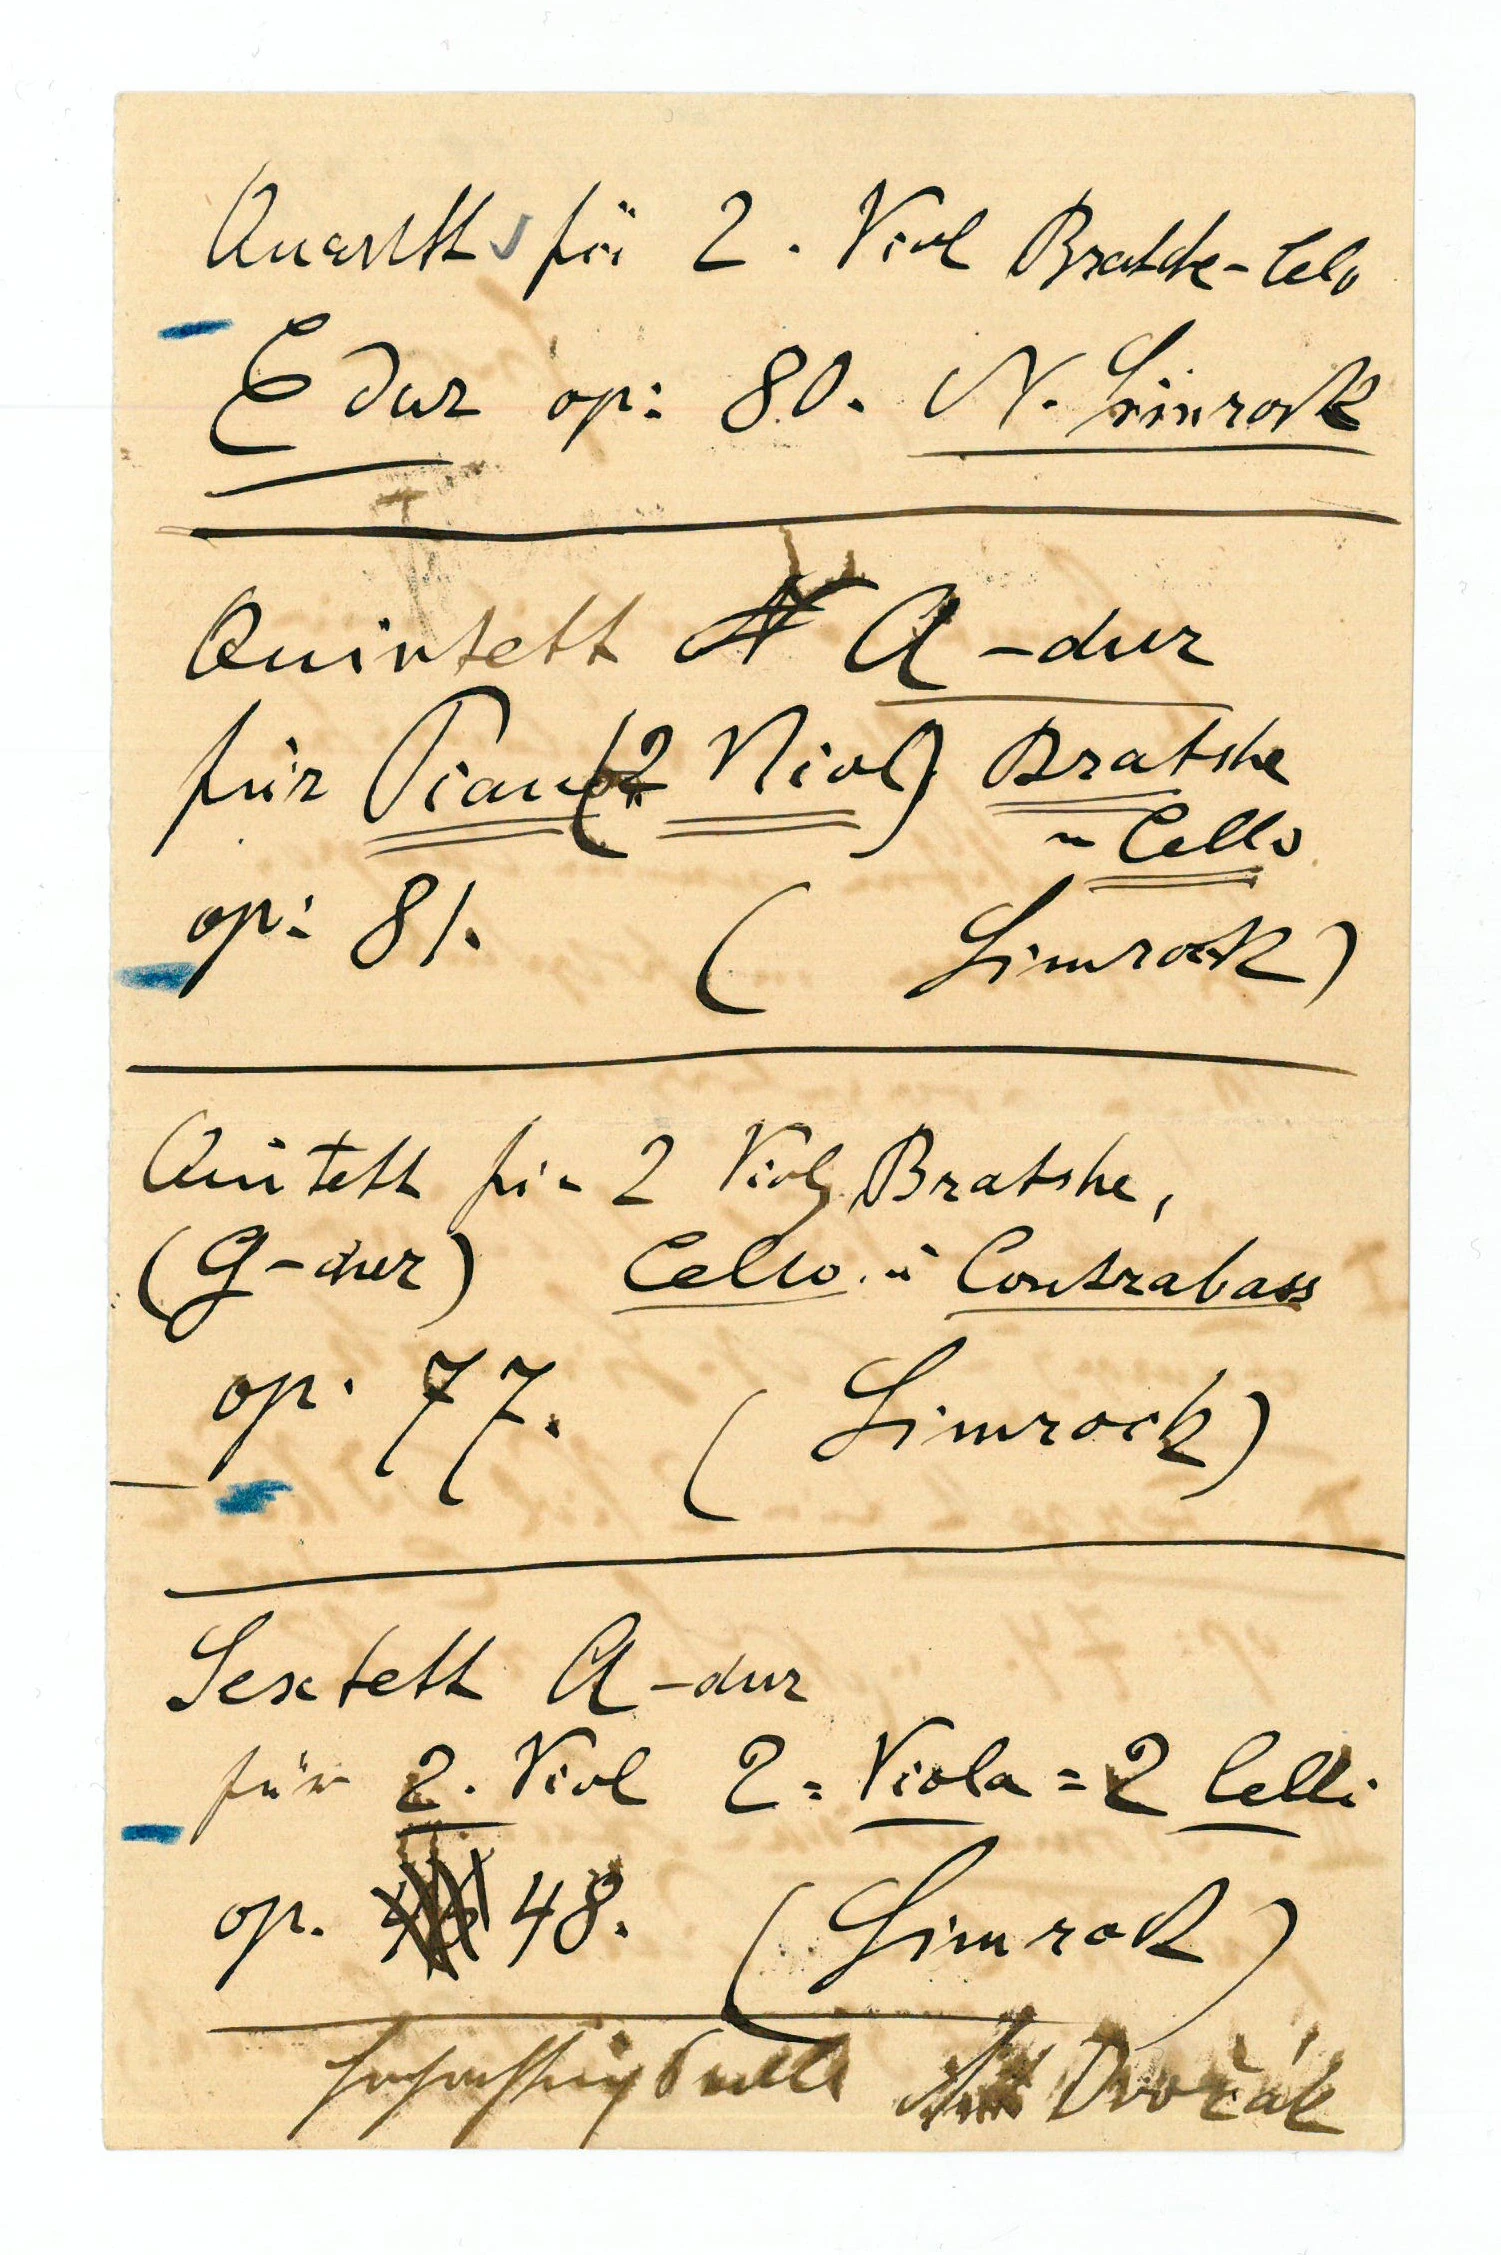 Quartett für 2. Viol Bratsche - Celo
E dur op: 80. N. Simrock
Quintett A - dur
für Piano (2 Viol) Bratshe
u Cello
op: 81. ( Simrock )
Quintett für 2 Viol, Bratshe,
(G - dur) Cello. u Contrabass
op. 77. ( Simrock )
Sextett A - dur
für 2. Viol 2 = Viola = 2 Celli.
op. 48. ( Simrock )
Ant Dvořák